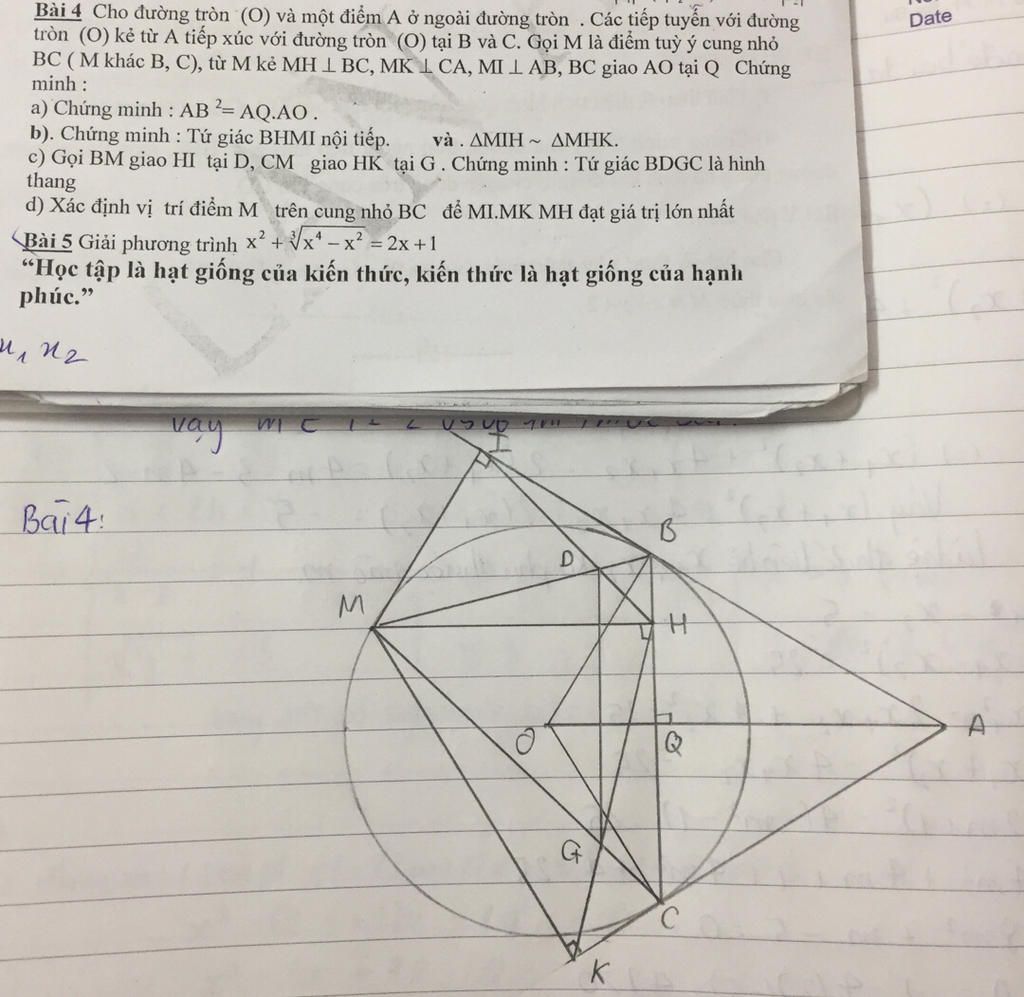 Bài 4 Cho đường tròn (O) và một điểm A ở ngoài đường tròn . Các tiếp tuyến với đường
Date
tròn (O) kẻ từ A tiếp xúc với đường tròn (O) tại B và C. Gọi M là điểm tuỳ ý cung nhỏ
BC ( M khác B, C), từ M kẻ MH ⊥ BC, MK ⊥ CA, MI ⊥ AB, BC giao AO tại Q Chứng
minh :
a) Chứng minh : AB ²= AQ.AO .
b). Chứng minh : Tứ giác BHMI nội tiếp. và . ΔMIH ~ ΔMHK.
c) Gọi BM giao HI tại D, CM giao HK tại G . Chứng minh : Tứ giác BDGC là hình
thang
d) Xác định vị trí điểm M trên cung nhỏ BC để MI.MK MH đạt giá trị lớn nhất
Bài 5 Giải phương trình x² + ∛(x⁴ − x²) = 2x + 1
“Học tập là hạt giống của kiến thức, kiến thức là hạt giống của hạnh
phúc.”
x₁ x₂
vậy m
I
Bài 4:
B
D
M
H
O
Q
A
G
C
K